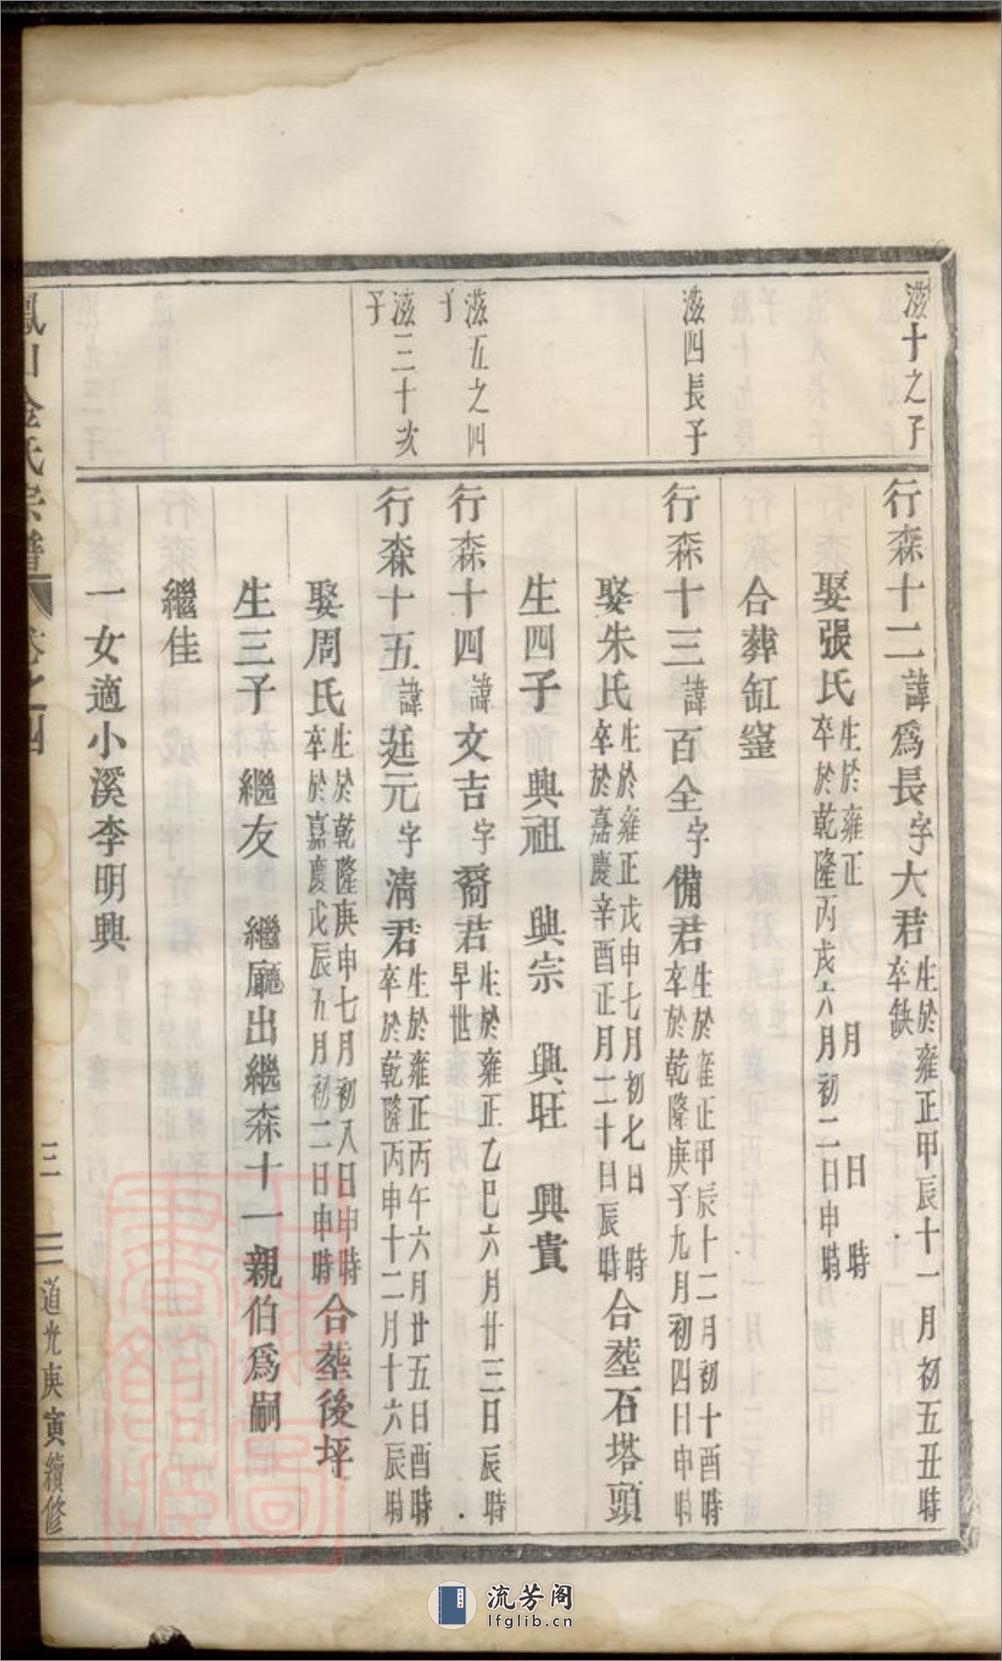 滋十之子
行森十二諱爲長字大君生於雍正甲辰十一月初五丑時
卒缺
娶張氏生於雍正 月 日 時
卒於乾隆丙戌六月初二日申時
合葬缸窰
滋四長子
行森十三諱百全字備君生於雍正甲辰十二月初十酉時
卒於乾隆庚子九月初四日申時
娶朱氏生於雍正戊申七月初七日 時
卒於嘉慶辛酉正月二十日辰時
合塟石塔頭
生四子 興祖 興宗 興旺 興貴
滋五之四
子
行森十四諱文吉字裔君生於雍正乙巳六月廿三日辰時
早世
滋三十次
子
行森十五諱廷元字清君生於雍正丙午六月廿五日酉時
卒於乾隆丙申十二月十六辰時
娶周氏生於乾隆庚申七月初八日申時
卒於嘉慶戊辰五月初二日申時
合塟後坪
生三子 繼友 繼廳出繼森十一親伯爲嗣
繼佳
一女適小溪李明興
鳳山金氏宗譜 卷之四 三 道光庚寅續修
流芳阁
lfglib.cn